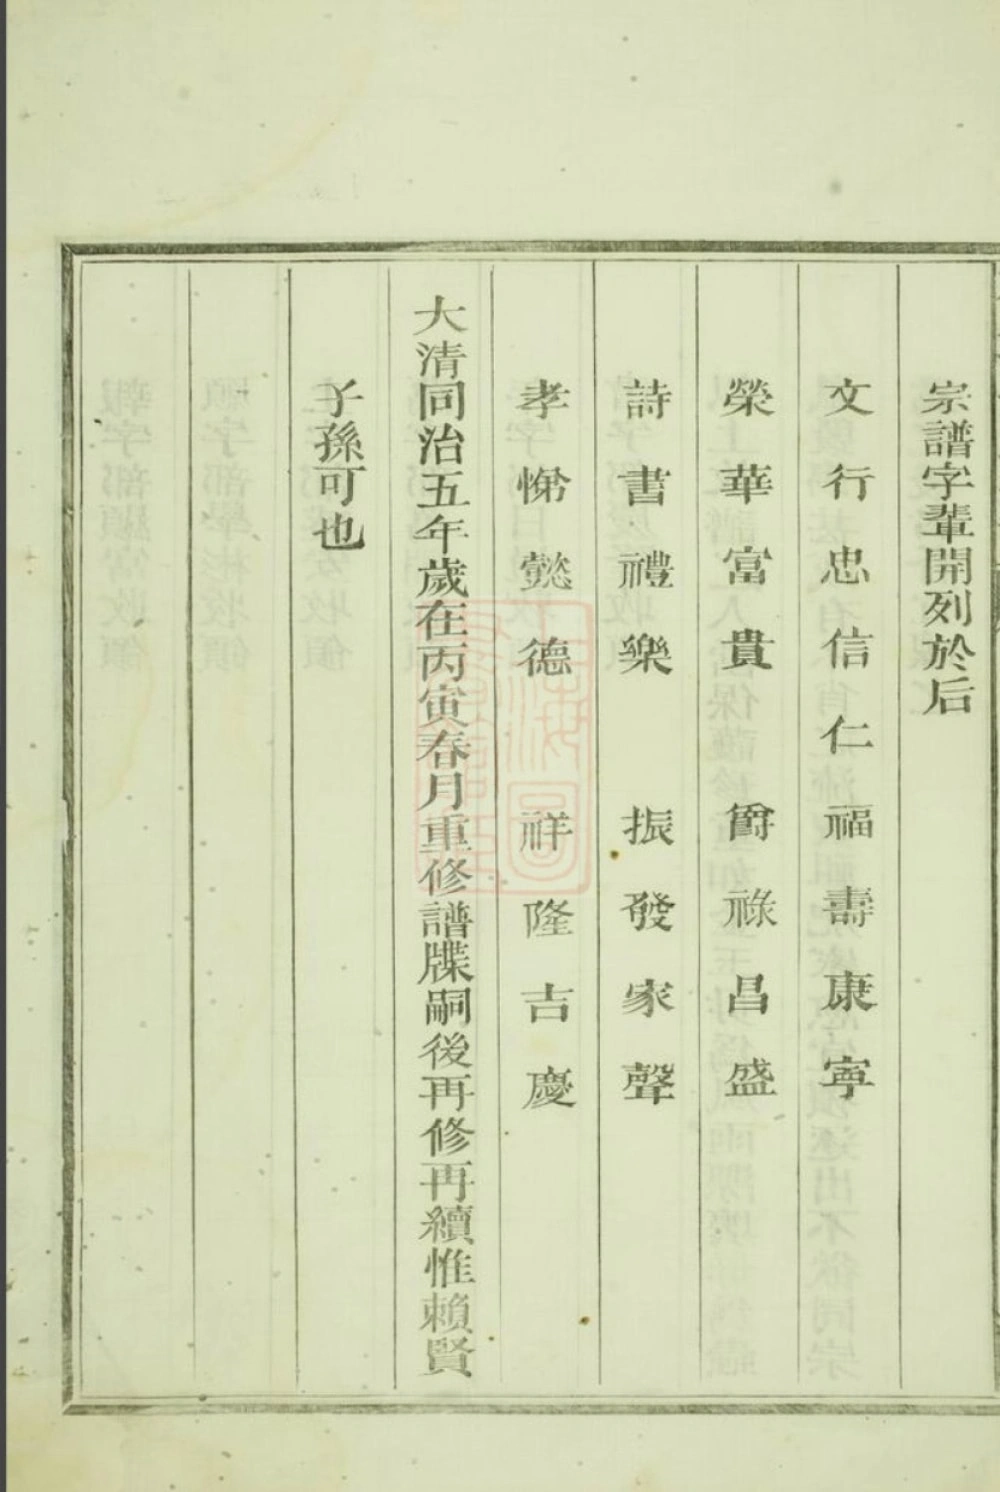 宗譜字輩開列於后
文行忠信仁福壽康寧
榮華富貴爵祿昌盛
詩書禮樂振發家聲
孝悌懿德祥隆吉慶
大清同治五年歲在丙寅春月重修譜牒嗣後再修再續惟賴賢
子孫可也